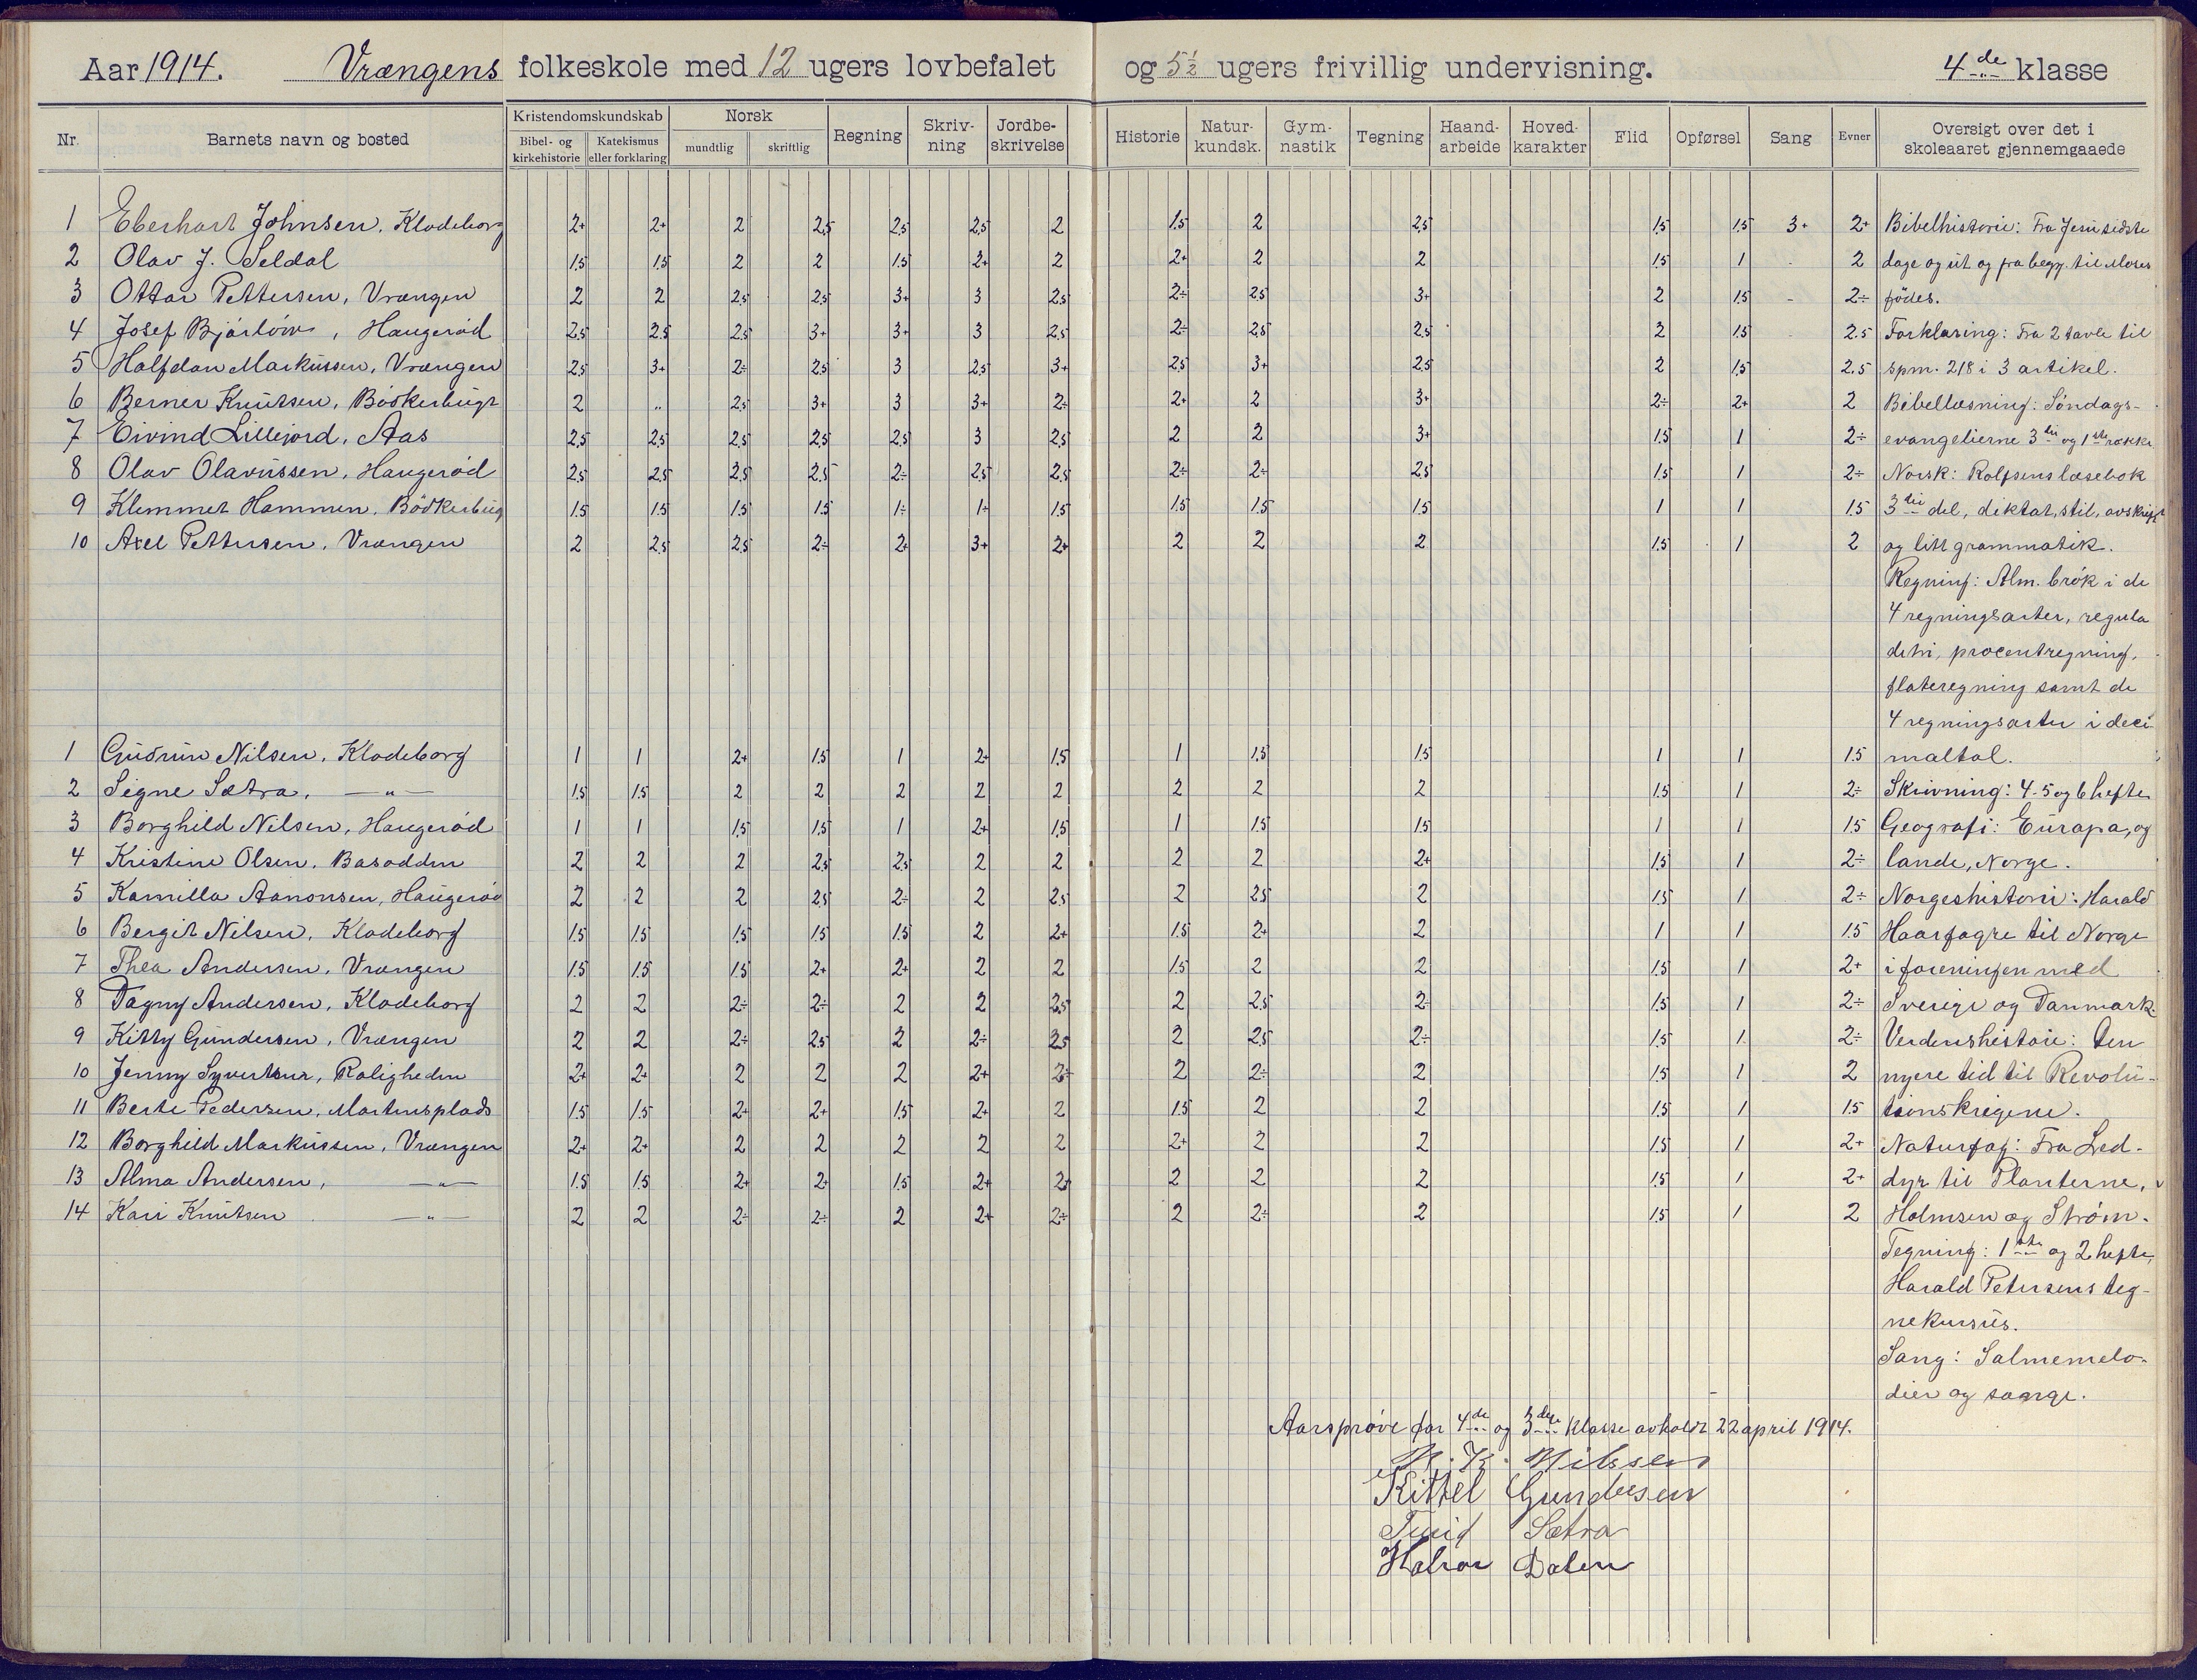 Aar 1914. Vrængens folkeskole med 12 ugers lovbefalet og 5½ ugers frivillig undervisning. 4de klasse
Nr. Barnets navn og bosted Kristendomskundskab Bibel- og kirkehistorie Katekismus eller forklaring Norsk mundtlig skriftlig Regning Skriv-ning Jordbe-skrivelse Historie Natur-kundsk. Gym-nastik Tegning Haand-arbeide Hoved-karakter Flid Opførsel Sang Evner Oversigt over det i skoleaaret gjennemgaaede
1 Eberhart Johnsen, Klodeborg 2+ 2+ 2 2,5 2,5 2,5 2 1.5 2 2,5 1.5 1.5 3+ 2+ Bibelhistorie: Fra Jesu sidste
2 Olav J. Seldal 1.5 1.5 2 2 1.5 2+ 2 2+ 2 2 1.5 1 - 2 dage og ut og fra begy. til Moses
3 Ottar Pettersen, Vrængen 2 2 2,5 2,5 3+ 3 2,5 2÷ 2,5 3+ 2 1.5 - 2÷ fødes.
4 Josef Bjørløw, Haugerød 2,5 2.5 2,5 3+ 3+ 3 2,5 2÷ 2,5 2,5 2 1.5 2.5 Forklaring: Fra 2 tavle til
5 Halfdan Markussen, Vrængen 2,5 3+ 2÷ 2,5 3 2,5 3+ 2,5 3+ 2,5 2 1.5 2.5 spm. 218 i 3 artikel.
6 Berner Knutsen, Bödkerbugt 2 „ 2,5 3+ 3 3+ 2÷ 2+ 2 3+ 2÷ 2+ 2 Bibellæsning: Søndags-
7 Eivind Lillejord, Aas 2,5 2,5 2,5 2,5 2,5 3 2,5 2 2 3+ 1.5 1 2÷ evangelierne 3die og 1ste række
8 Olav Olavussen, Haugerød 2,5 2,5 2,5 2,5 2÷ 2,5 2,5 2÷ 2÷ 2,5 1.5 1 2÷ Norsk: Rolfsens læsebok
9 Klemmet Hammen, Bödkerbug 1.5 1.5 1.5 1.5 1÷ 1÷ 1.5 1.5 1.5 1.5 1 1 1.5 3die del, diktat, stil, avskrift
10 Axel Pettersen, Vrængen 2 2,5 2,5 2÷ 2+ 3+ 2+ 2 2 2 1.5 1 2 og litt grammatik.
Regning: Alm. brøk i de
4 regningsarter, regula
detri, procentregning,
flateregning samt de
4 regningsarter i deci-
1 Gudrun Nilsen, Klodeborg 1 1 2+ 1.5 1 2+ 1.5 1 1.5 1.5 1 1 1.5 maltal.
2 Signe Sætra, —„— 1.5 1.5 2 2 2 2 2 2 2 2 1.5 1 2÷ Skrivning: 4-5 og 6 hefte
3 Borghild Nilsen, Haugerød 1 1 1.5 1.5 1 2+ 1.5 1 1.5 1.5 1 1 1.5 Geografi: Europa, og
4 Kristine Olsen, Basodden 2 2 2 2,5 2,5 2 2 2 2 2+ 1.5 1 2÷ lande, Norge.
5 Kamilla Aanonsen, Haugerød 2 2 2 2,5 2÷ 2 2,5 2 2,5 2 1.5 1 2÷ Norgeshistorie: Harald
6 Bergit Nilsen, Klodeborg 1.5 1.5 1.5 1.5 1.5 2 2+ 1.5 2+ 2 1 1 1.5 Haarfagre til Norge
7 Thea Andersen, Vrængen 1.5 1.5 1.5 2+ 2+ 2 2 1.5 2 2 1.5 1 2+ i foreningen med
8 Dagny Andersen, Klodeborg 2 2 2÷ 2÷ 2 2 2,5 2 2,5 2÷ 1.5 1 2÷ Sverige og Danmark.
9 Kitty Gundersen, Vrængen 2 2 2÷ 2,5 2 2÷ 2,5 2 2,5 2÷ 1.5 1 2÷ Verdenshistorie: den
10 Jenny Syvertsen, Roligheden 2+ 2+ 2 2 2 2+ 2÷ 2 2÷ 2 1.5 1 2 nyere tid til Revolu-
11 Berte Pedersen, Martinsplads 1.5 1.5 2+ 2+ 1.5 2+ 2 1.5 2 2 1.5 1 1.5 tionskrigene.
12 Borghild Markussen, Vrængen 2+ 2+ 2 2 2 2 2 2+ 2 2 1.5 1 2+ Naturfag: Fra Led-
13 Alma Andersen, —„— 1.5 1.5 2+ 2+ 1.5 2+ 2+ 2 2 2 1.5 1 2+ dyr til Planterne,
14 Kari Knutsen —„— 2 2 2÷ 2÷ 2 2+ 2÷ 2 2÷ 2 1.5 1 2 Holmsen og Strøm.
Tegning: 1ste og 2 hefte,
Harald Petersens teg-
nekursus.
Sang: Salmemelo-
dier og sange.
Aarsprøve for 4de og 3dje klasse avholdt 22 april 1914.
N. K. Nilsen
Kittel Gundersen
Sætra
Halvor Dalen